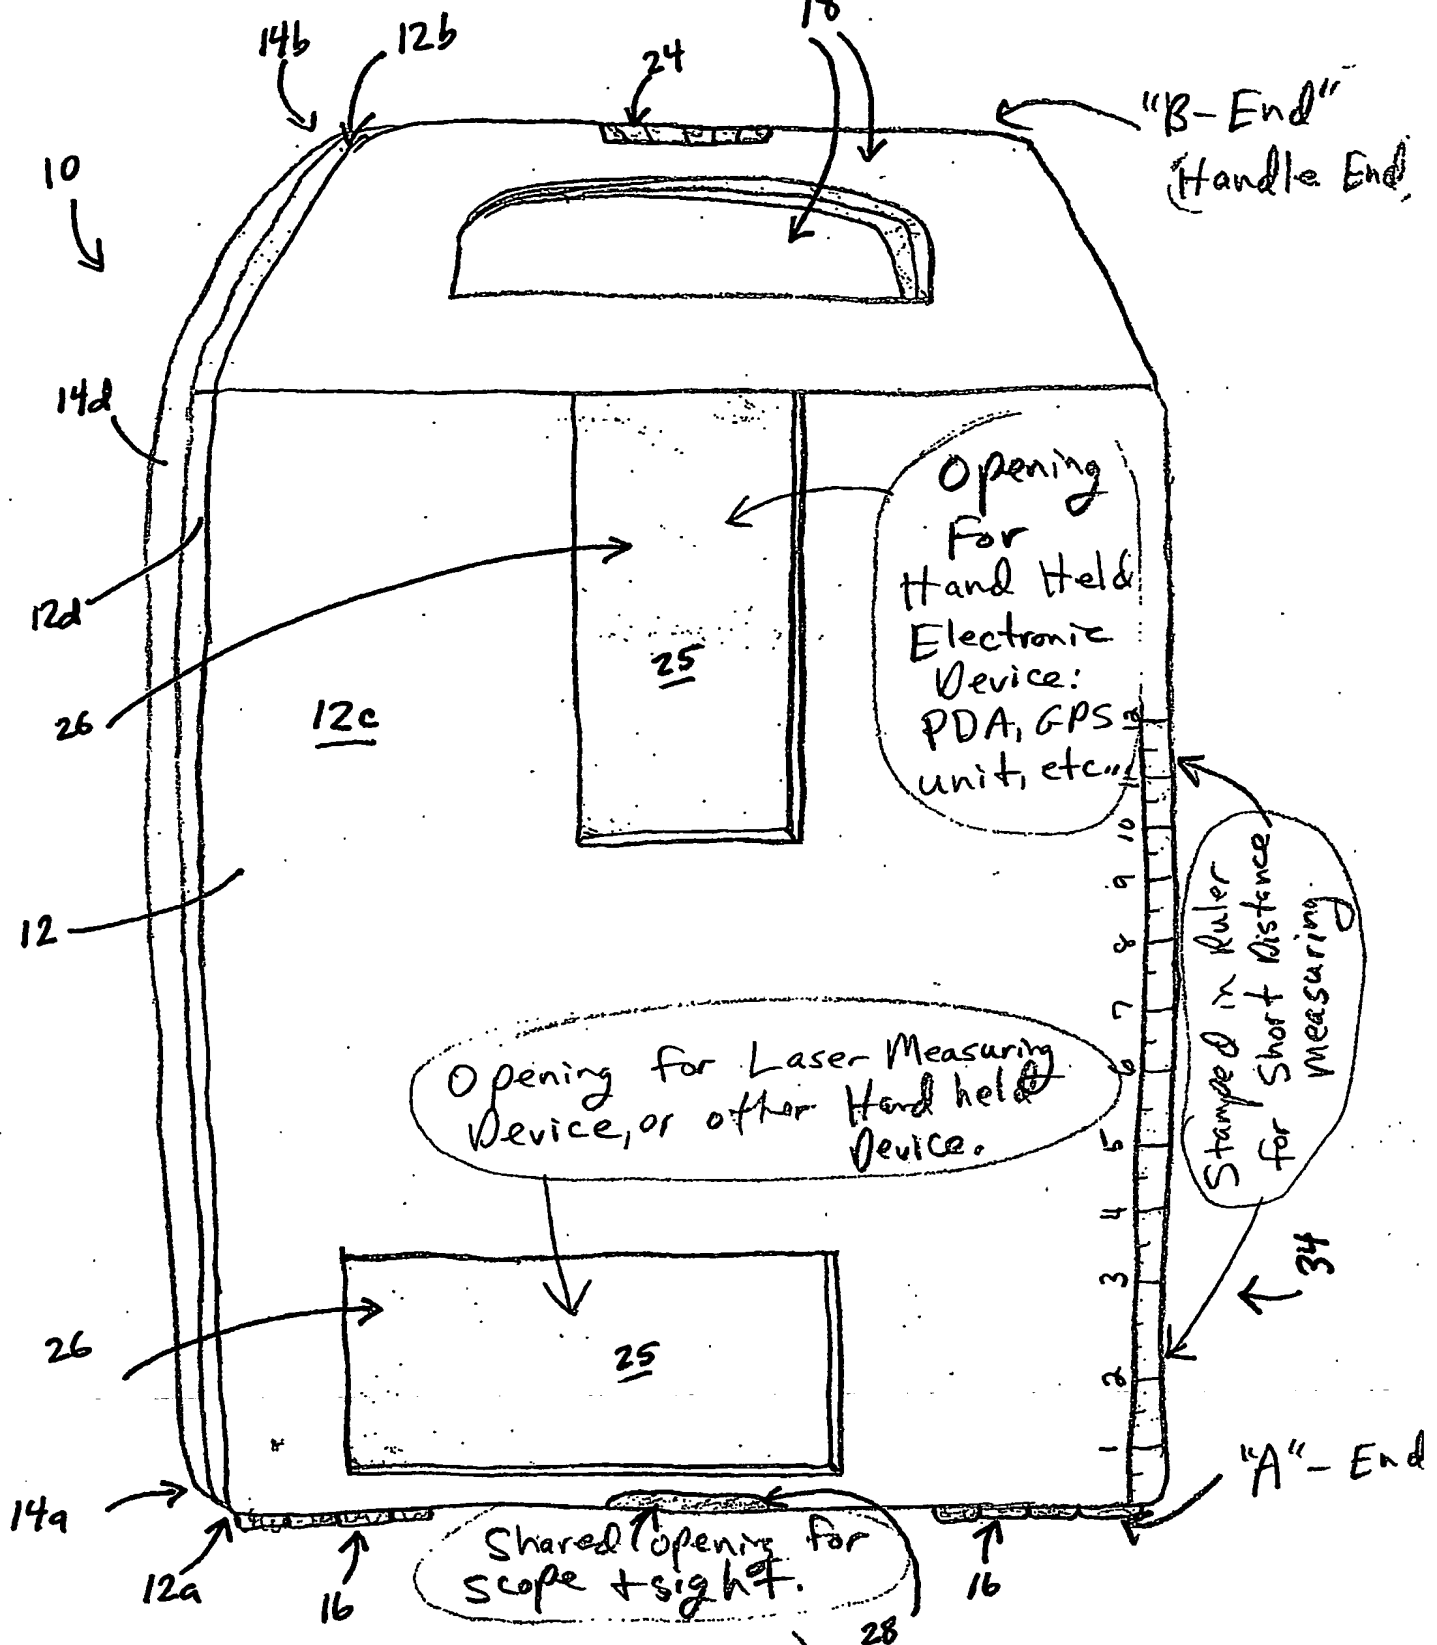 18
14b
12b
24
"B-End"
Handle End.
10
14d
Opening
For
Hand Held
Electronic
Device:
PDA, GPS
unit, etc...
12d
26
25
12c
12
12
11
10
9
8
7
6
5
4
3
2
1
Stamped in Ruler
for Short Distance
measuring.
34
Opening for Laser Measuring
Device, or other Hand held
Device.
26
25
"A"-End
14a
12a
16
Shared opening for
scope + sight.
28
16